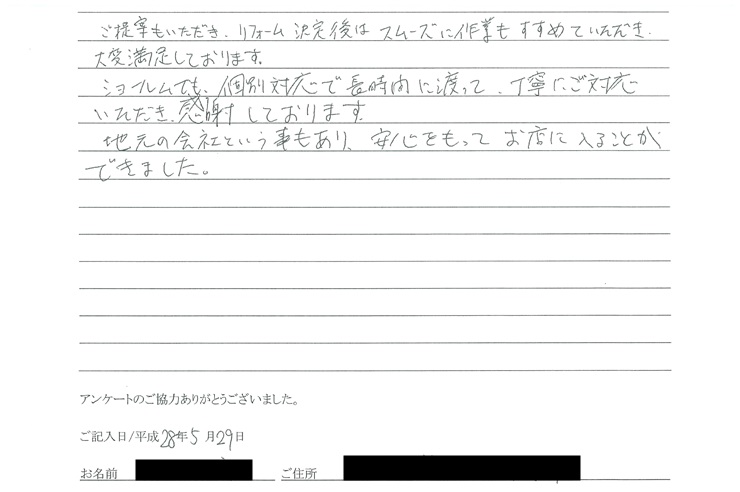 ご提案もいただき、リフォーム決定後はスムーズに作業もすすめていただき、
大変満足しております。
ショールムでも、個別対応で長時間に渡って、丁寧にご対応
いただき、感謝しております。
地元の会社という事もあり、安心をもってお店に入ることが
できました。
アンケートのご協力ありがとうございました。
ご記入日/平成28年5月29日
お名前 ご住所